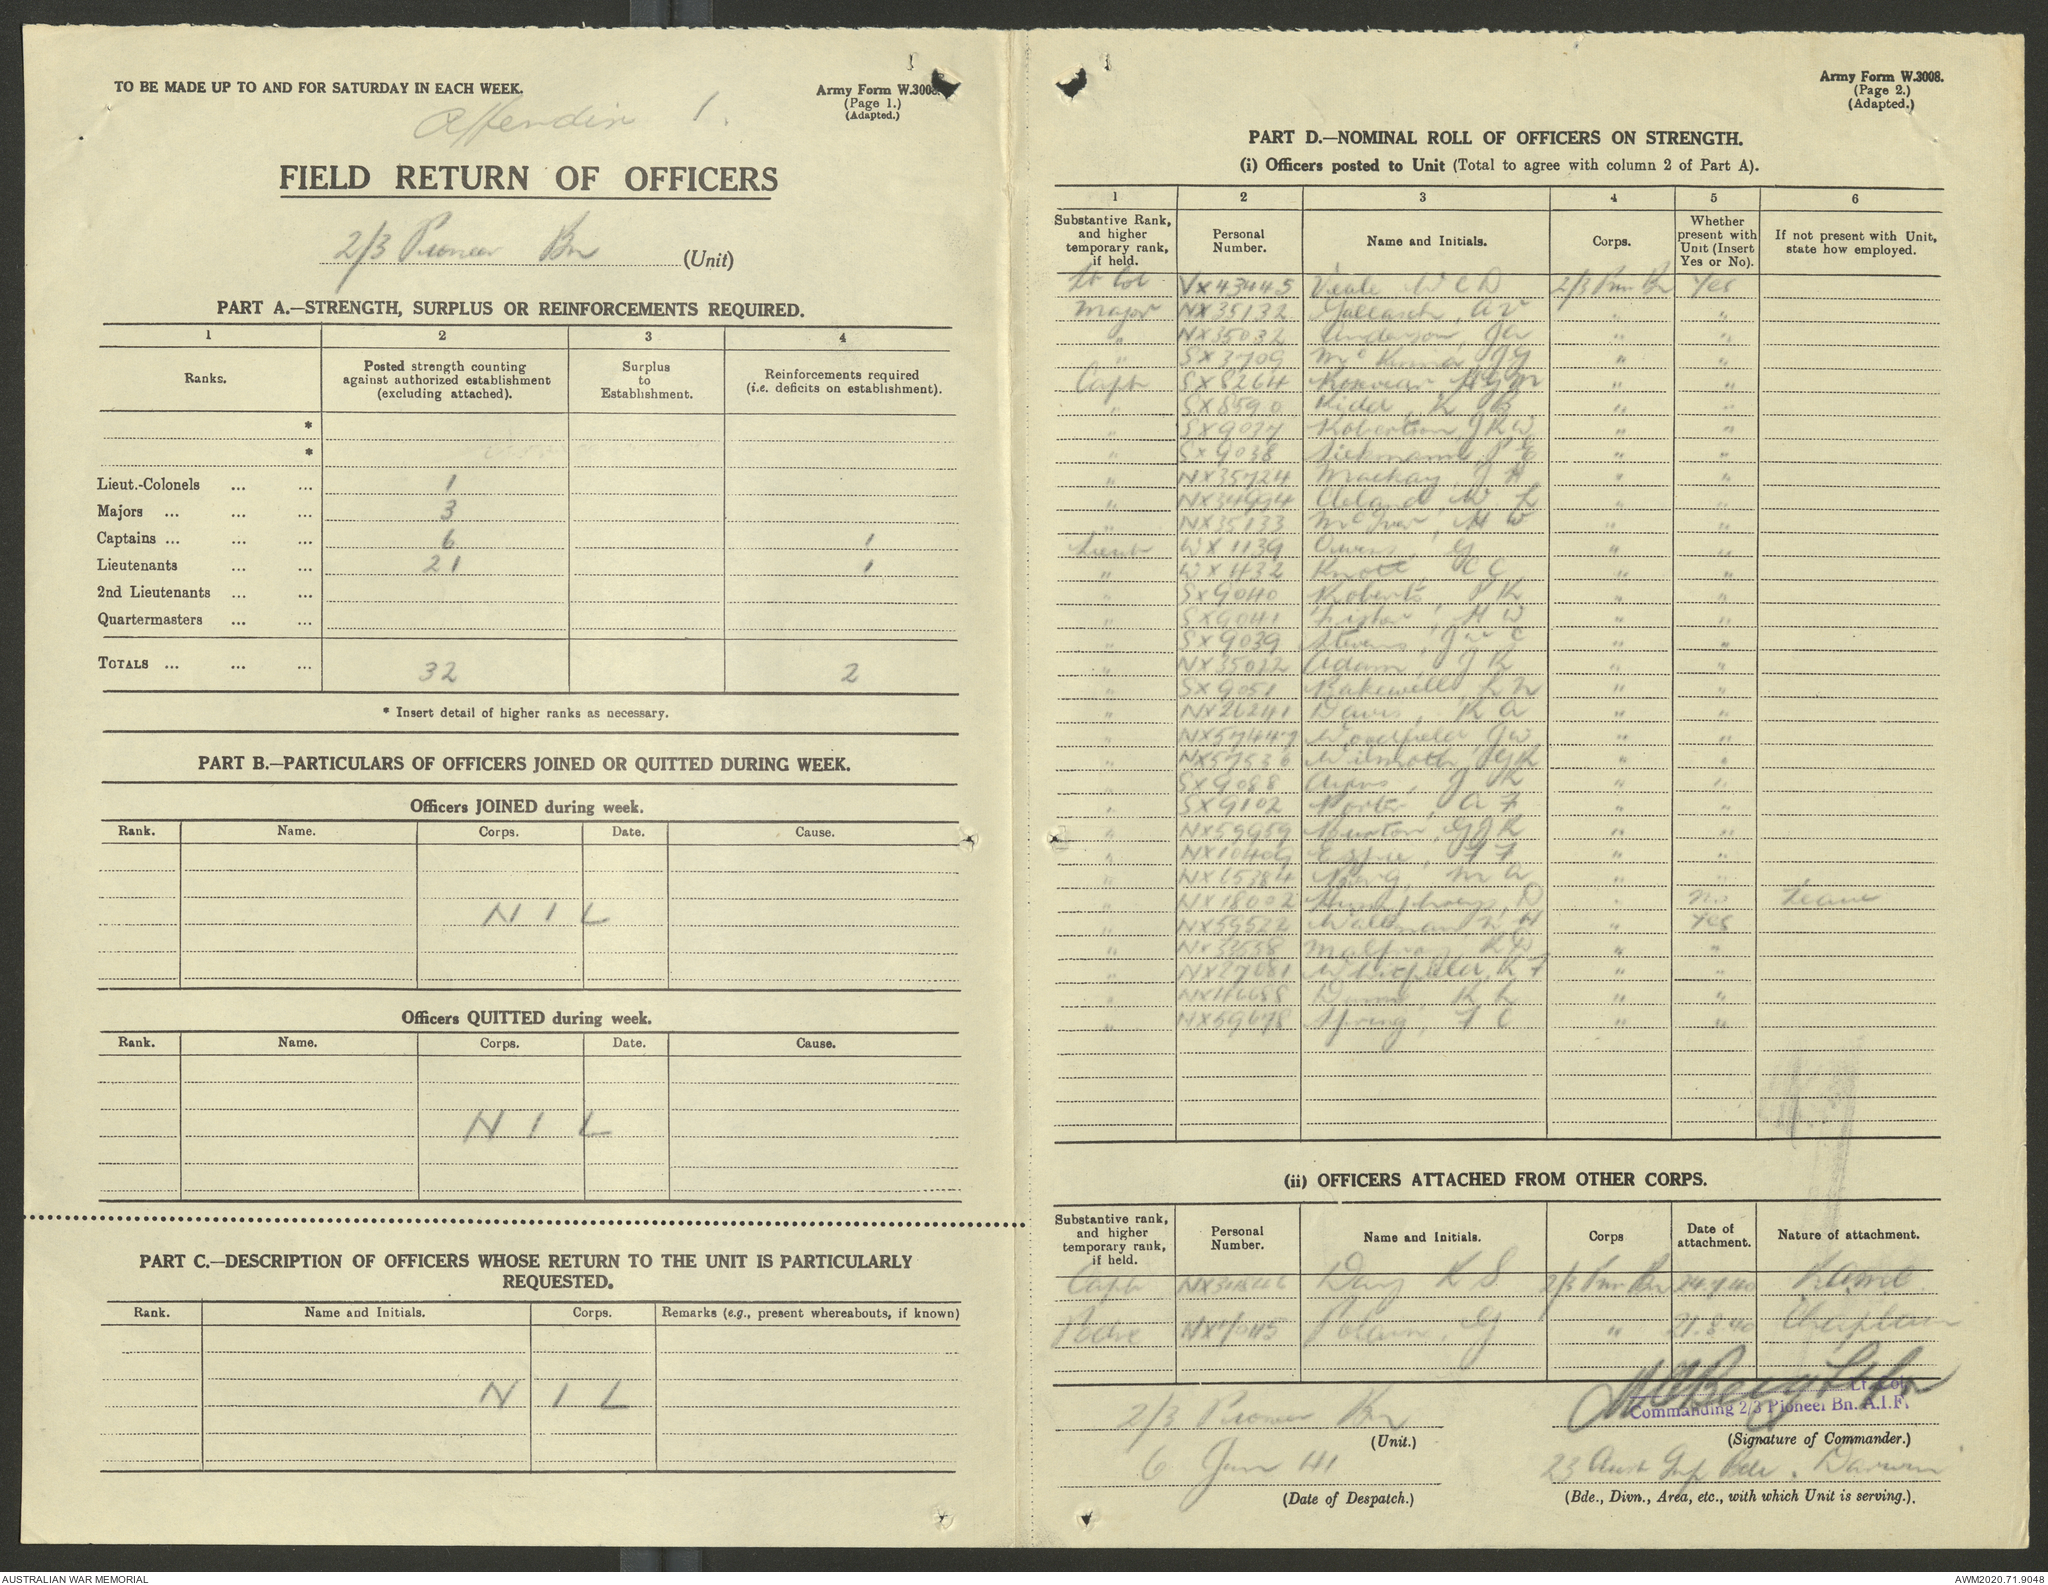 TO BE MADE UP TO AND FOR SATURDAY IN EACH WEEK.
Army Form W.3008.
(Page 1.)
(Adapted.)
Appendix 1.
FIELD RETURN OF OFFICERS
2/3 Pioneer Bn (Unit)
PART A.—STRENGTH, SURPLUS OR REINFORCEMENTS REQUIRED.
1 2 3 4
Ranks. Posted strength counting against authorized establishment (excluding attached). Surplus to Establishment. Reinforcements required (i.e. deficits on establishment).
*
*
Lieut.-Colonels ... ... 1
Majors ... ... ... 3
Captains ... ... ... 6 1
Lieutenants ... ... 21 1
2nd Lieutenants ... ...
Quartermasters ... ...
TOTALS ... ... ... 32 2
* Insert detail of higher ranks as necessary.
PART B.—PARTICULARS OF OFFICERS JOINED OR QUITTED DURING WEEK.
Officers JOINED during week.
Rank. Name. Corps. Date. Cause.
NIL
Officers QUITTED during week.
Rank. Name. Corps. Date. Cause.
NIL
PART C.—DESCRIPTION OF OFFICERS WHOSE RETURN TO THE UNIT IS PARTICULARLY REQUESTED.
Rank. Name and Initials. Corps. Remarks (e.g., present whereabouts, if known)
NIL
Army Form W.3008.
(Page 2.)
(Adapted.)
PART D.—NOMINAL ROLL OF OFFICERS ON STRENGTH.
(i) Officers posted to Unit (Total to agree with column 2 of Part A).
1 2 3 4 5 6
Substantive Rank, and higher temporary rank, if held. Personal Number. Name and Initials. Corps. Whether present with Unit (Insert Yes or No). If not present with Unit, state how employed.
Lt Col VX43445 Veale W C D 2/3 Pnr Bn Yes
Major NX35132 Gallasch, A V " "
" NX35032 Anderson, J A " "
" SX3709 " "
Capt SX8264 " "
" SX8590 Kidd, K B " "
" SX9037 Robertson, J R W " "
" SX9038 " "
" NX35724 Mackay, J H " "
" NX34994 Cleland W L " "
" NX35133 McIver, H W " "
Lieut WX1139 Owens, G " "
" WX1432 Knott, C C " "
" SX9040 Roberts, " "
" SX9041 H W " "
" SX9039 Stevens, " "
" NX35022 Adam, J R " "
" SX9051 Bakewell L N " "
" NX26241 Davis, R A " "
" NX57447 Woodfield, J W " "
" NX57536 Wilmoth, " "
" SX9088 " "
" SX9102 Porter, A F " "
" NX59959 Burton, G J R " "
" NX10409 F F " "
" NX65384 M A " "
" NX18002 Humphreys, D " No Leave
" NX59522 Wallman W H " Yes
" NX33558 " "
" NX27081 Whitfield, R F " "
" NX46688 Dunn, R L " "
" NX59678 Spring, F C " "
(ii) OFFICERS ATTACHED FROM OTHER CORPS.
Substantive rank, and higher temporary rank, if held. Personal Number. Name and Initials. Corps Date of attachment. Nature of attachment.
Capt Day K S 2/3 Pnr Bn 24.7.40 R.A.M.C.
Padre Polain, G " 21.8.40 Chaplain
2/3 Pioneer Bn
(Unit.)
Lt. Col.
Commanding 2/3 Pioneer Bn. A.I.F.
(Signature of Commander.)
6 Jan 41
(Date of Despatch.)
23 Aust Inf Bde. Darwin
(Bde., Divn., Area, etc., with which Unit is serving.).
AUSTRALIAN WAR MEMORIAL
AWM2020.71.9048